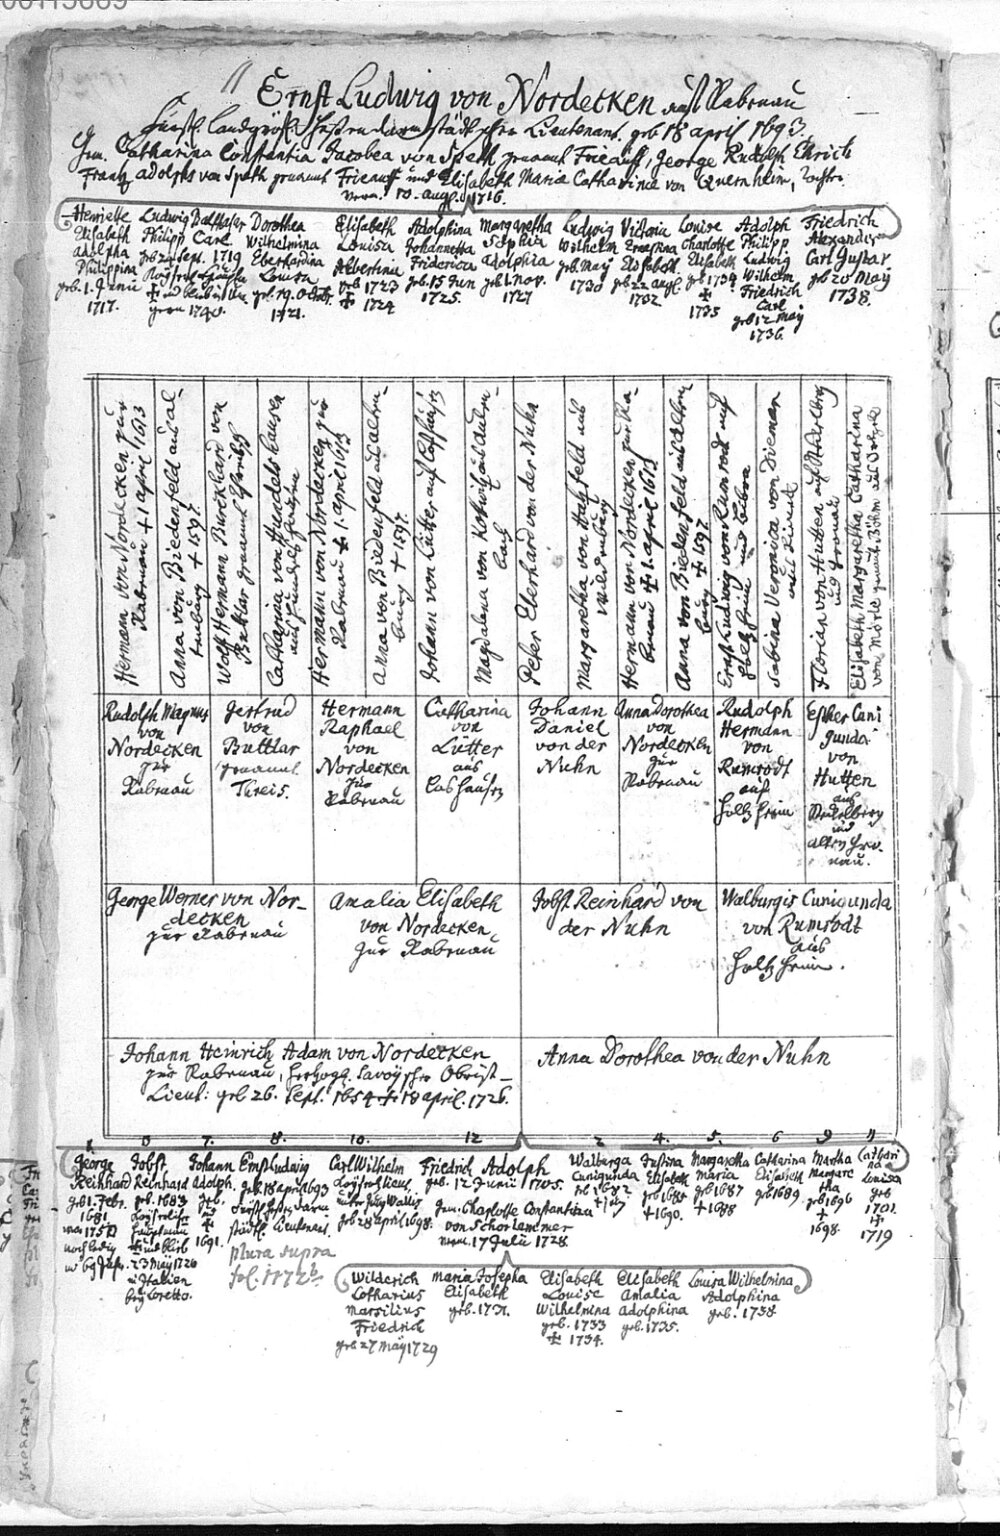 Ernst Ludwig von Nordecken aus Rabenau
Fürstl. Landgräfl. Hessen darmstädtischer Lieutenant, geb 18 april 1693.
Gem. Catharina Constantia Jacobea von Speth genannt Frieauff, George Rudolph Ehrich
Frantz adolphs von Speth genannt Frieauff und Elisabeth Maria Catharina von Quernheim, Tochter.
verm. 10. aug. 1716.
Henriette
Elisabeth
adolpha
Philippina
geb. 1. Junii
1717.
Ludwig Balthasar
Philipp Carl
geb 24 Sept. 1719
1740.
Dorothea
Wilhelmina
Eberhardina
Louisa
geb. 19. Octobr.
1721.
Elisabeth
Louisa
Albertina
geb 1723
✝ 1724
Adolphina
Johannetta
Friderica
geb. 15 Jun
1725.
Margaretha
Sophia
adolphia
geb 1. nov.
1727
Ludwig
Wilhelm
geb. May
1730
Victoria
Ernestina
Elisabeth
geb 22 augl.
1732
Louise
Charlotte
Elisabeth
geb 1734
✝
1735
Adolph
Philipp
Ludwig
Wilhelm
Friedrich
Carl
geb 12 May
1736.
Friedrich
Alexander
Carl Gustav
geb 20 May
1738.
Hermann von Nordecken zur
Rabenau ✝ 1 april 1613
Anna von Biedenfeld aus al-
tenburg ✝ 1597.
Wolf Hermann Burckhard von
Buttlar genannt
Catharina von Hundelshausen
aus
Hermann von Nordecken zur
Rabenau ✝ 1. april 1613
Anna von Biedenfeld aus alten-
burg ✝ 1597.
Johann von Lütter auf Loshausen
Magdalena von
bach
Peter Eberhard von der Nuhn
Margaretha von Hatzfeld aus
Wildenburg
Hermann von Nordecken zur Ra-
benau ✝ 1. april 1613
Anna von Biedenfeld aus alten
burg ✝ 1597
Ernst Ludwig von Rumrodt auf
Holtzheim und
Sabina Veronica von Diemar
aus
Florian von Hutten auf Steckelberg
und
Elisabeth Margaretha Catharina
von Mörle genant Böhm aus
Rudolph Magnus
von
Nordecken
zur
Rabenau
Gertrud
von
Buttlar
genannt
Threis.
Hermann
Raphael
von
Nordecken
zur
Rabenau
Catharina
von
Lütter
aus
Loshausen
Johann
Daniel
von der
Nuhn
Anna Dorothea
von
Nordecken
zur
Rabenau
Rudolph
Hermann
von
Rumrodt
auf
Holtzheim
Esther Cani
gunda
von
Hutten
aus
Steckelberg
und
alten Gro-
nau.
George Werner von Nor-
decken
zur Rabenau
Amalia Elisabeth
von Nordecken
zur Rabenau
Jobst Reinhard von
der Nuhn
Walburgis Cunigunda
von Rumrodt
aus
Holtzheim.
Johann Heinrich Adam von Nordecken
zur Rabenau, Hertzogl. Savoyscher Obrist-
Lieut: geb 26. Sept. 1654 ✝ 18 april. 1726.
Anna Dorothea von der Nuhn
1 6 7. 8. 10. 12 2 4. 5. 6 9 11
George
Reinhard
geb 1. Febr.
1681
Jobst
Reinhard
geb. 1683
✝ und blieb
23 May 1726
in Italien
bey Loretto.
Johann
Adolph.
geb.
und
✝
1691.
Ernst Ludwig
geb. 18 april 1693
Lieutenant.
plura supra
fol. 1172b.
Carl Wilhelm
geb 28 april 1698.
Friedrich Adolph
geb. 12 Junii 1705.
Gem. Charlotte Constantina
von Schorlemmer
verm. 17 Julii 1728.
Walburga
Cunigunda
geb 1682
Justina
Elisabeth
geb 1686
✝ 1690.
Margaretha
Maria
geb 1687
✝ 1688
Catharina
Elisabeth
geb 1689
Martha
Margare
tha
geb 1696
✝
1698.
Cathari
na
Louisa
geb
1701.
✝
1719
Wilderich
Lotharius
Marsilius
Friedrich
geb 27 May 1729
Maria Josepha
Elisabeth
geb. 1731.
Elisabeth
Louise
Wilhelmina
geb. 1733
✝ 1734.
Elisabeth
Amalia
Adolphina
geb. 1735.
Louisa Wilhelmina
Adolphina
geb. 1738.